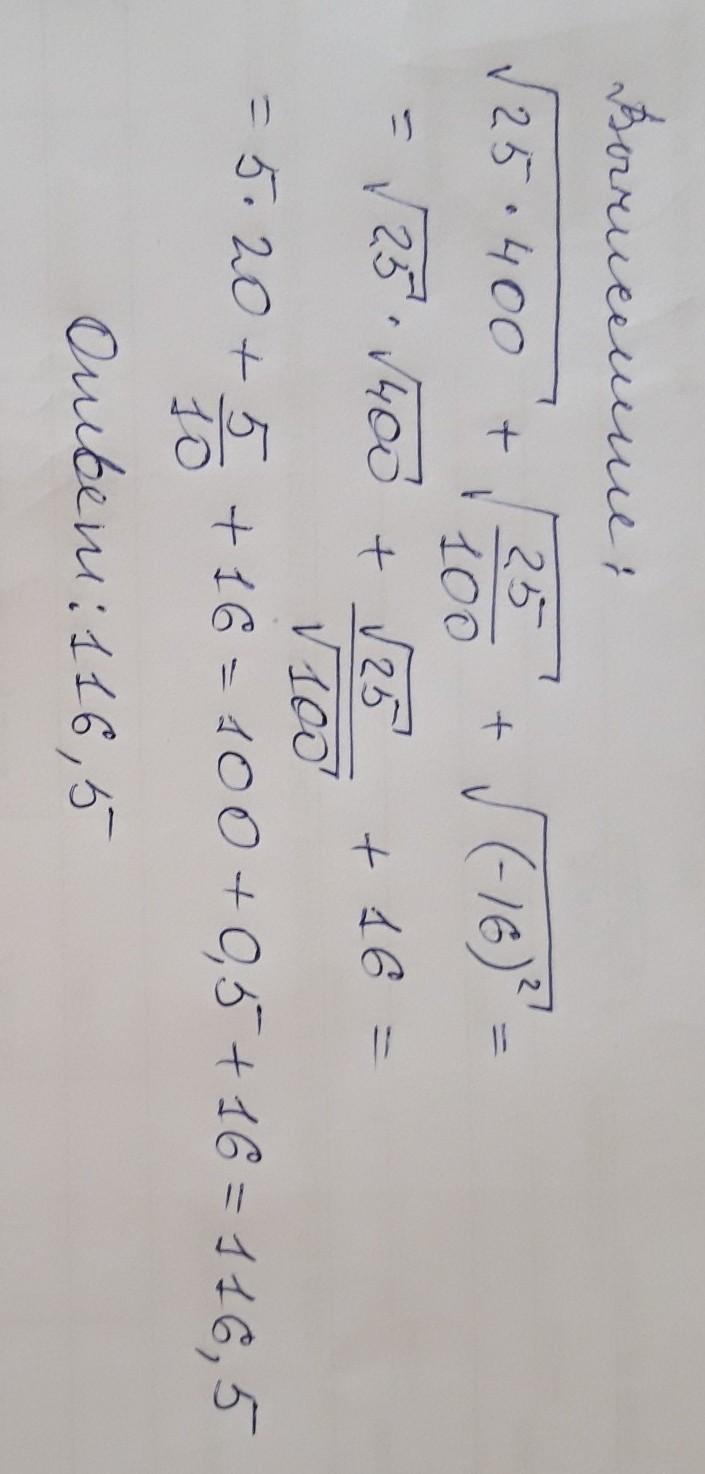 Вычисление:
√25·400 + √25/100 + √(-16)² =
= √25 · √400 + √25/√100 + 16 =
= 5·20 + 5/10 + 16 = 100 + 0,5 + 16 = 116,5
Ответ: 116,5